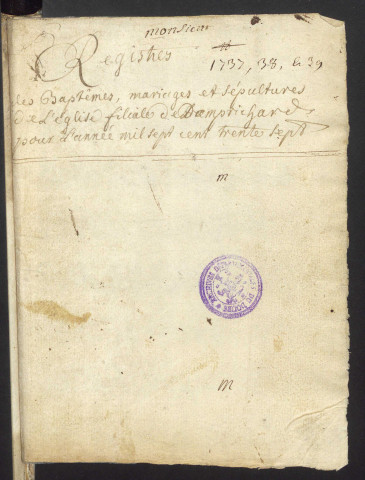 monsieur
Registres
1737, 38, & 39
des Baptêmes, mariages et sépultures
de L'Eglise filiale de Damprichard
pour L'année mil sept cent trente sept
m
ARCHIVES DÉPARTEMENTALES DU DOUBS
m